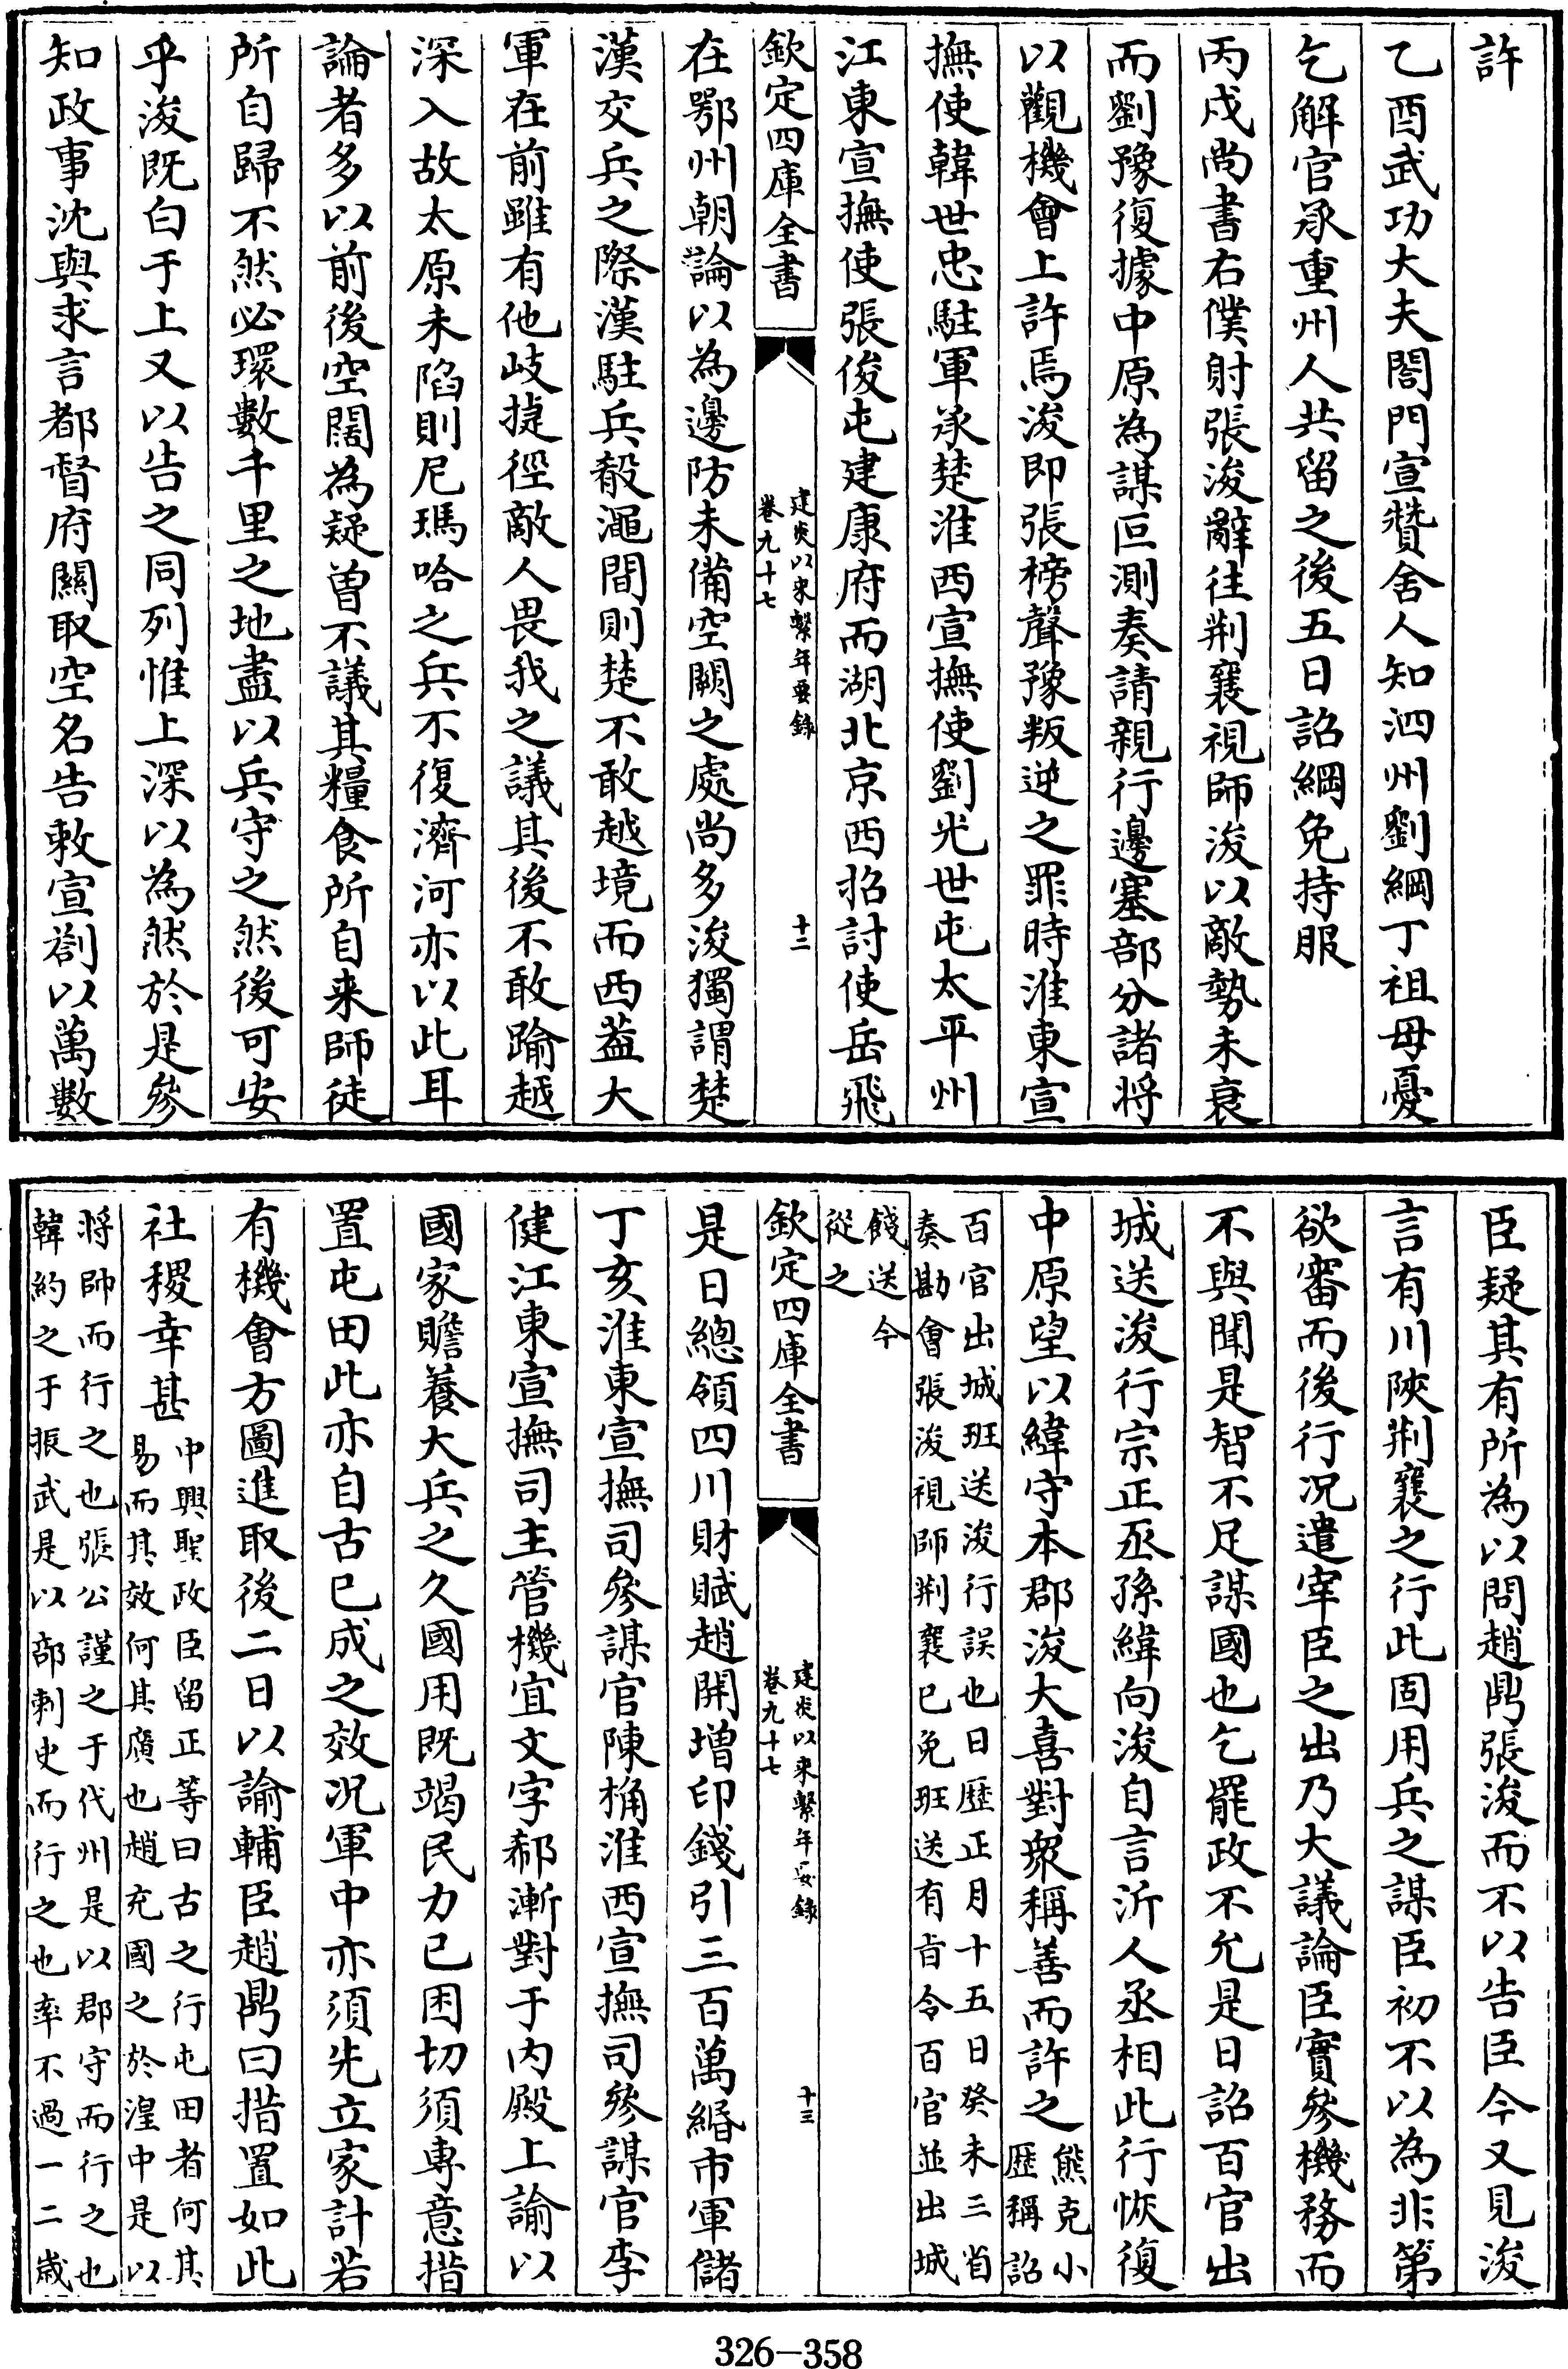 許
乙酉武功大夫閤門宣贊舍人知泗州劉綱丁祖母憂
乞解官承重州人共留之後五日詔綱免持服
丙戌尚書右僕射張浚辭往荆襄視師浚以敵勢未衰
而劉豫復據中原為謀叵測奏請親行邊塞部分諸將
以觀機會上許焉浚即張榜聲豫叛逆之罪時淮東宣
撫使韓世忠駐軍承楚淮西宣撫使劉光世屯太平州
江東宣撫使張俊屯建康府而湖北京西招討使岳飛
欽定四庫全書
建炎以來繫年要錄
卷九十七
十二
在鄂州朝論以為邊防未備空闕之處尚多浚獨謂楚
漢交兵之際漢駐兵殽澠間則楚不敢越境而西葢大
軍在前雖有他歧捷徑敵人畏我之議其後不敢踰越
深入故太原未陷則尼瑪哈之兵不復濟河亦以此耳
論者多以前後空闊為疑曾不議其糧食所自来師徒
所自歸不然必環數千里之地盡以兵守之然後可安
乎浚既白于上又以告之同列惟上深以為然於是參
知政事沈與求言都督府關取空名告敕宣劄以萬數
臣疑其有所為以問趙鼎張浚而不以告臣今又見浚
言有川陜荆襄之行此固用兵之謀臣初不以為非第
欲審而後行况遣宰臣之出乃大議論臣實參機務而
不與聞是智不足謀國也乞罷政不允是日詔百官出
城送浚行宗正丞孫緯向浚自言沂人丞相此行恢復
中原望以緯守本郡浚大喜對衆稱善而許之熊克小
歷稱詔
百官出城班送浚行誤也日歷正月十五日癸未三省
奏勘會張浚視師荆襄已免班送有旨令百官並出城
餞送今
從之
欽定四庫全書
建炎以來繫年要錄
卷九十七
十三
是日總領四川財賦趙開增印錢引三百萬緡市軍儲
丁亥淮東宣撫司參謀官陳桷淮西宣撫司參謀官李
健江東宣撫司主管機宜文字郗漸對于内殿上諭以
國家贍養大兵之久國用既竭民力已困切須專意措
置屯田此亦自古已成之效况軍中亦須先立家計若
有機會方圖進取後二日以諭輔臣趙鼎曰措置如此
社稷幸甚中興聖政臣留正等曰古之行屯田者何其
易而其效何其廣也趙充國之於湟中是以
將帥而行之也張公謹之于代州是以郡守而行之也
韓約之于振武是以部刺史而行之也率不過一二歲
326-358